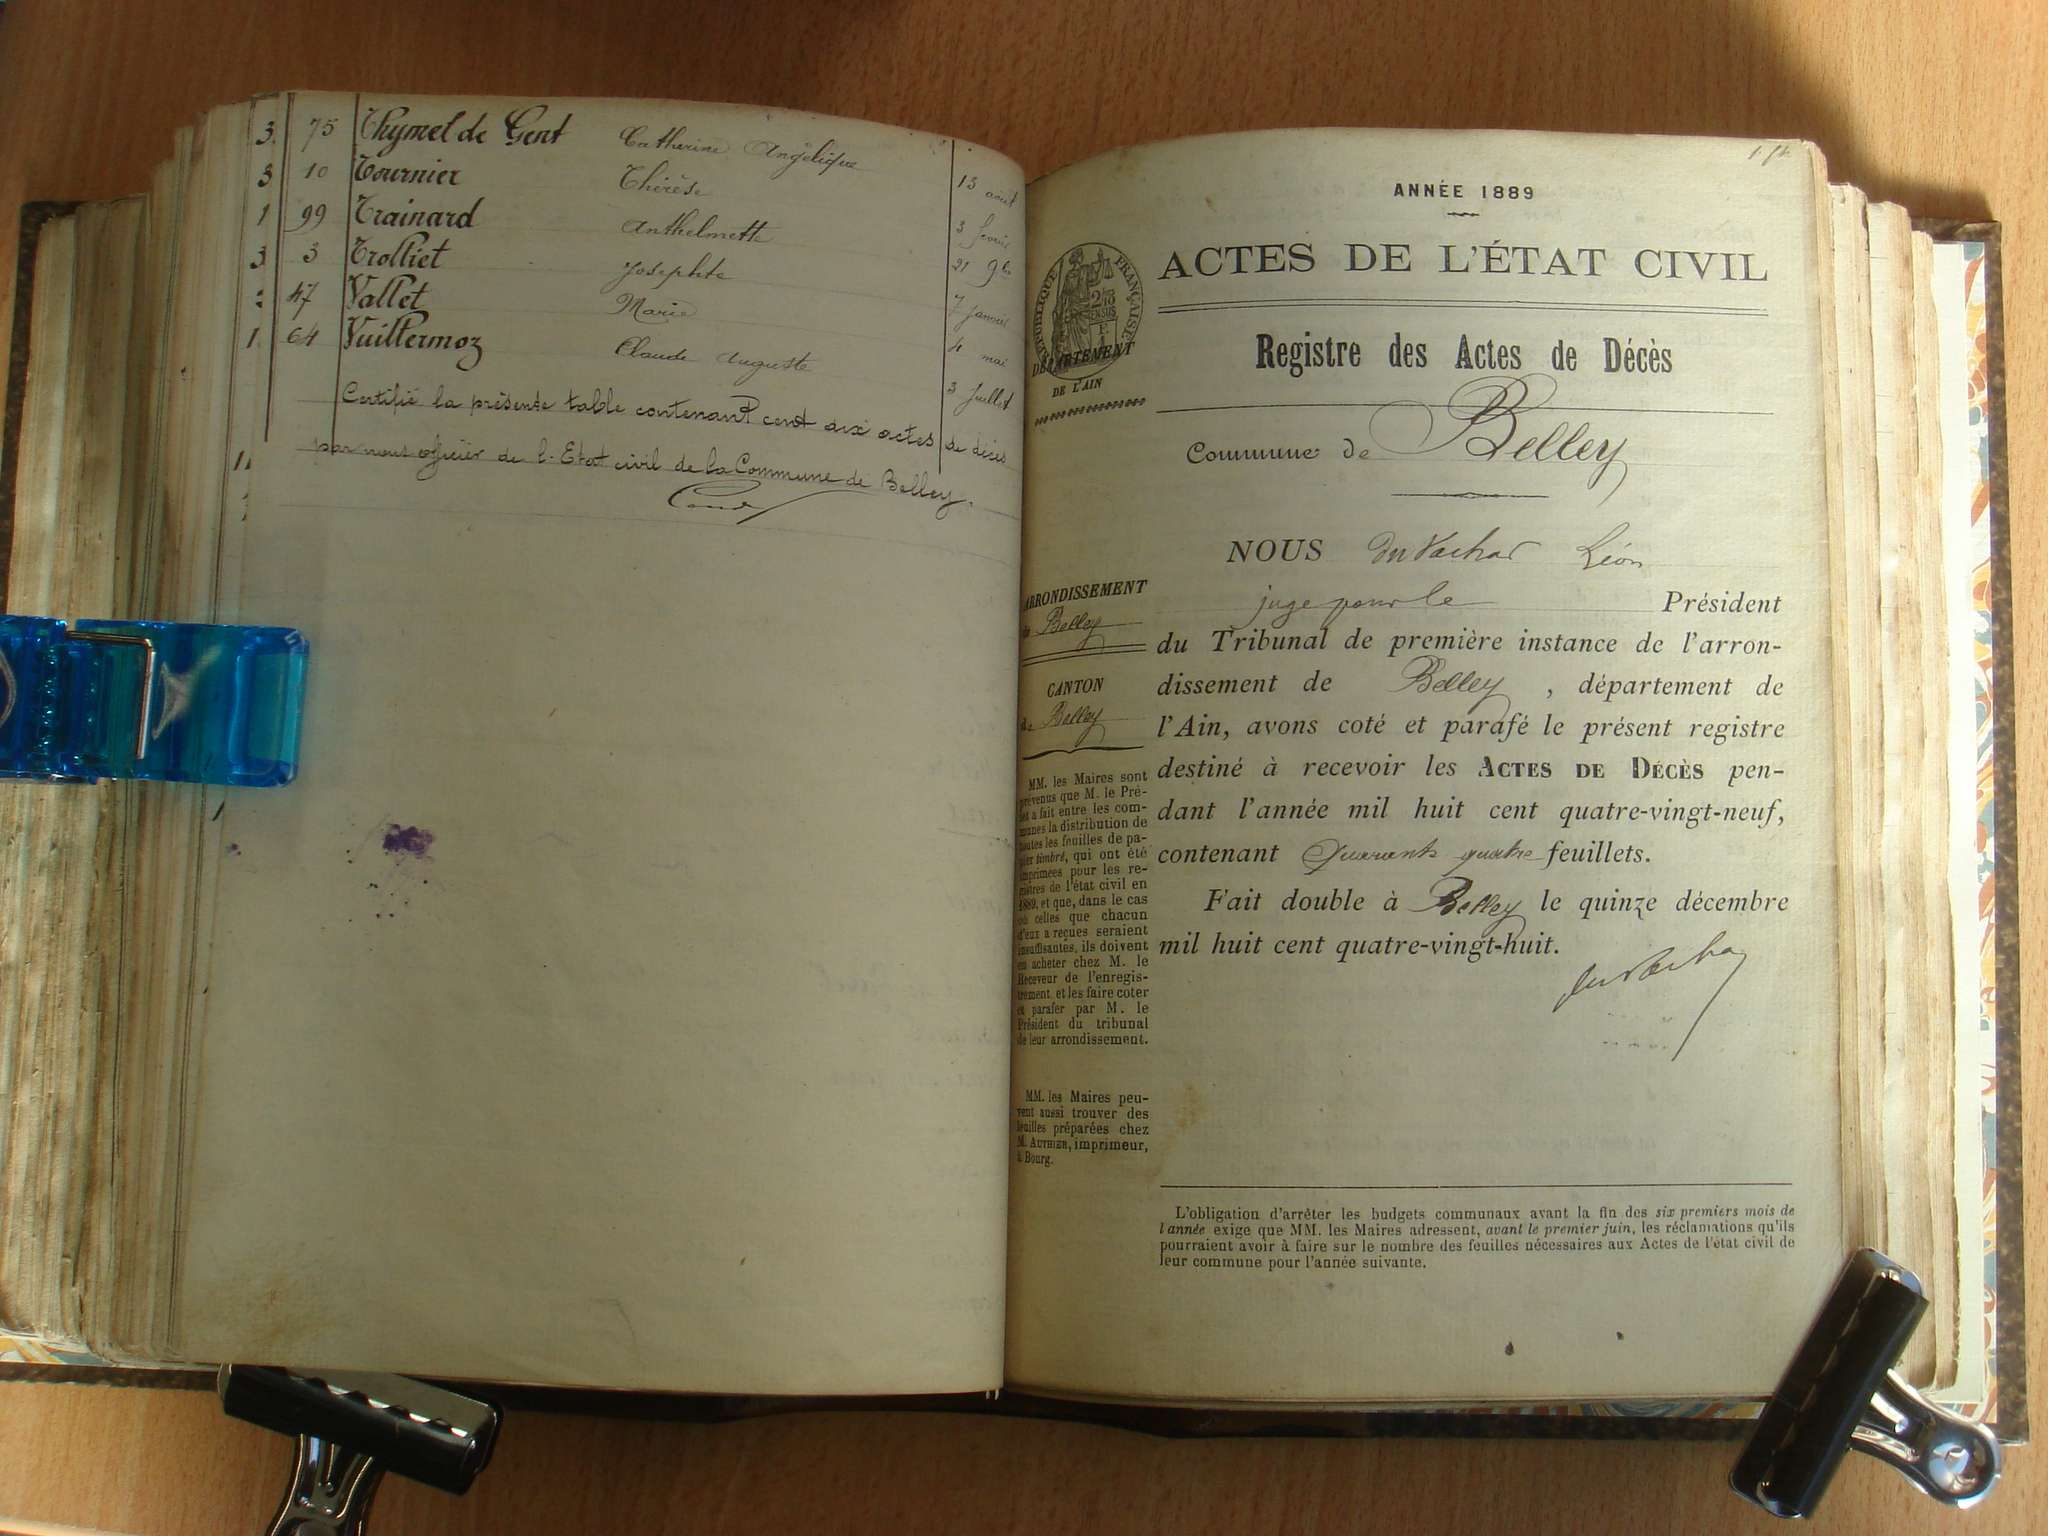 3 75 Thymel de Gent Catherine Angélique 13 août
3 10 Tournier Thérèse 3 fevrier
1 99 Trainard Anthelmette 21 9bre
3 3 Trolliet Josephte 7 Janvier
47 Vallet Marie 4 mai
1 64 Vuillermoz Claude Auguste 3 Juillet
Certifié la présente table contenant cent dix actes de décès
par nous officier de l'Etat civil de la Commune de Belley.
ANNÉE 1889
ACTES DE L'ÉTAT CIVIL
RÉPUBLIQUE FRANÇAISE
DÉPARTEMENT
DE L'AIN
Registre des Actes de Décès
Commune de Belley
NOUS Du Vachat Léon
juge pour le Président
du Tribunal de première instance de l'arron-
dissement de Belley, département de
l'Ain, avons coté et parafé le présent registre
destiné à recevoir les ACTES DE DÉCÈS pen-
dant l'année mil huit cent quatre-vingt-neuf,
contenant Quarante quatre feuillets.
Fait double à Belley le quinze décembre
mil huit cent quatre-vingt-huit.
du Vachat
ARRONDISSEMENT
de Belley
CANTON
de Belley
MM. les Maires sont
prévenus que M. le Pré-
fet a fait entre les com-
munes la distribution de
toutes les feuilles de pa-
pier timbré, qui ont été
imprimées pour les re-
gistres de l'état civil en
1889, et que, dans le cas
où celles que chacun
d'eux a reçues seraient
insuffisantes, ils doivent
en acheter chez M. le
Receveur de l'enregis-
trement, et les faire coter
et parafer par M. le
Président du tribunal
de leur arrondissement.
MM. les Maires peu-
vent aussi trouver des
feuilles préparées chez
M. AUTHIER, imprimeur,
à Bourg.
L'obligation d'arrêter les budgets communaux avant la fin des six premiers mois de
l'année exige que MM. les Maires adressent, avant le premier juin, les réclamations qu'ils
pourraient avoir à faire sur le nombre des feuilles nécessaires aux Actes de l'état civil de
leur commune pour l'année suivante.